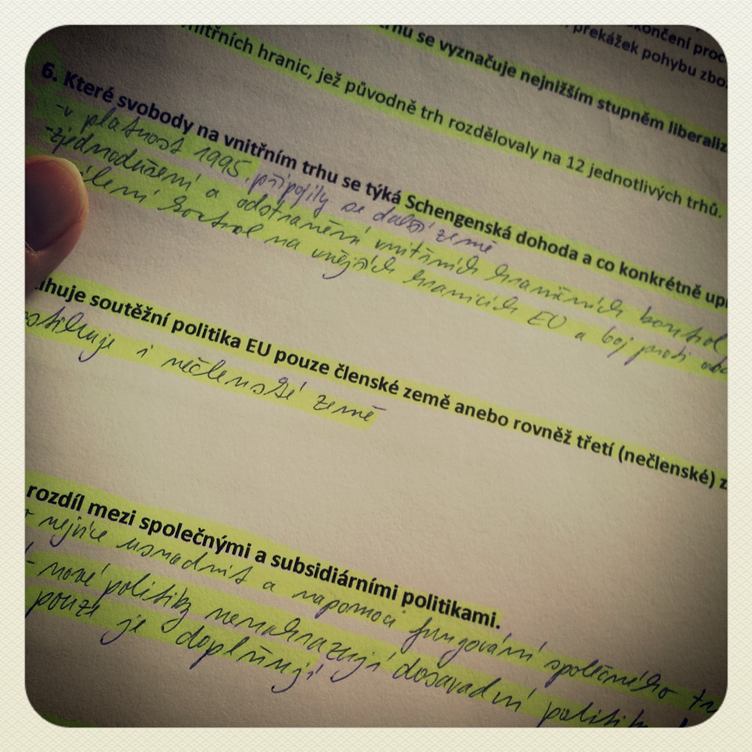 končení proc
překážek pohybu zbo
trhu se vyznačuje nejnižším stupněm liberaliz
nitřních hranic, jež původně trh rozdělovaly na 12 jednotlivých trhů.
6. Které svobody na vnitřním trhu se týká Schengenská dohoda a co konkrétně upr
-v platnost 1995, připojily se další země
-zjednodušení a odstranění vnitřních hraničních kontrol
ílení kontrol na vnějších hranicích EU a boj proti
ihuje soutěžní politika EU pouze členské země anebo rovněž třetí (nečlenské) z
ostihuje i nečlenské země
rozdíl mezi společnými a subsidiárními politikami.
nejvíce usnadnit a napomoci fungování společného
- nové politiky nenahrazují dosavadní politik
pouze je doplňují